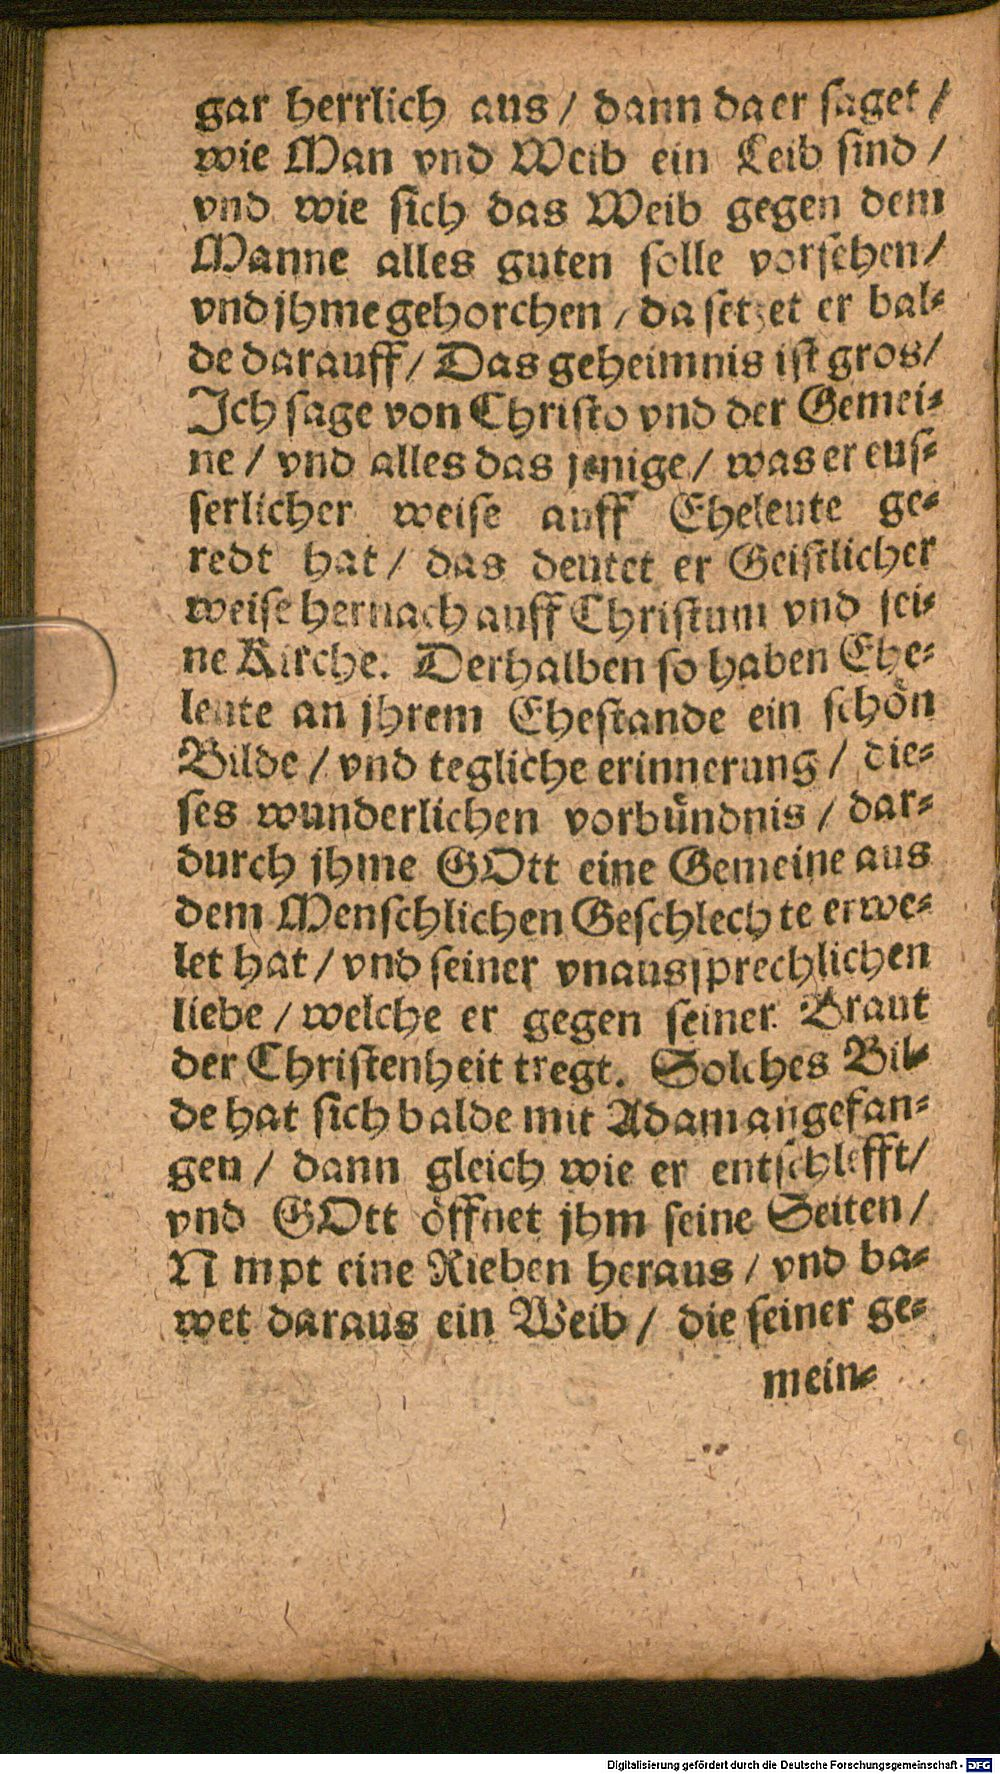 gar herrlich aus / dann da er saget /
wie Man vnd Weib ein Leib sind /
vnd wie sich das Weib gegen dem
Manne alles guten solle vorsehen /
vnd jhme gehorchen / da setzet er bal-
de darauff / Das geheimnis ist gros /
Ich sage von Christo vnd der Gemei-
ne / vnd alles das jenige / was er eus-
serlicher weise auff Eheleute ge-
redt hat / das deutet er Geistlicher
weise hernach auff Christum vnd sei-
ne Kirche. Derhalben so haben Ehe-
leute an jhrem Ehestande ein schön
Bilde / vnd tegliche erinnerung / die-
ses wunderlichen vorbündnis / dar-
durch jhme GOtt eine Gemeine aus
dem Menschlichen Geschlechte erwe-
let hat / vnd seiner vnaussprechlichen
liebe / welche er gegen seiner Braut
der Christenheit tregt. Solches Bil-
de hat sich balde mit Adam angefan-
gen / dann gleich wie er entschlefft /
vnd GOtt öffnet jhm seine Seiten /
N mpt eine Rieben heraus / vnd ba-
wet daraus ein Weib / die seiner ge-
mein-
Digitalisierung gefördert durch die Deutsche Forschungsgemeinschaft - DFG